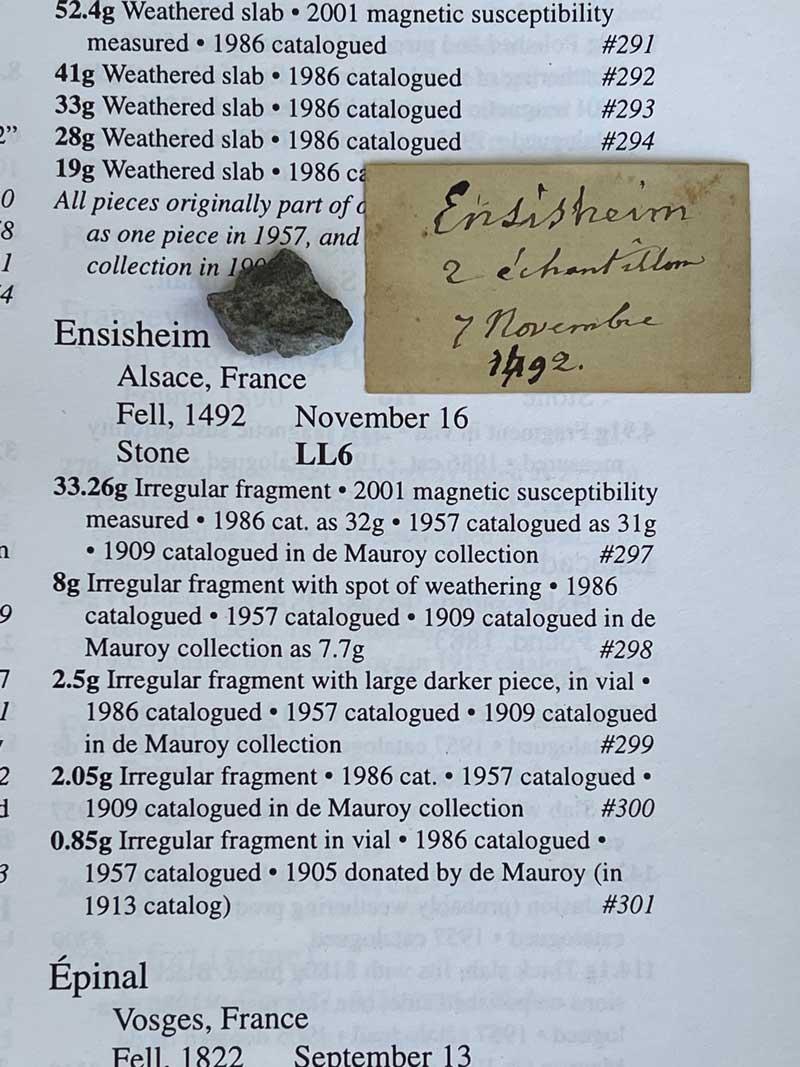 52.4g Weathered slab • 2001 magnetic susceptibility
measured • 1986 catalogued #291
41g Weathered slab • 1986 catalogued #292
33g Weathered slab • 1986 catalogued #293
28g Weathered slab • 1986 catalogued #294
19g Weathered slab • 1986 ca
All pieces originally part of o
as one piece in 1957, and
collection in 19
Ensisheim
2 échantillon
7 Novembre
1492.
Ensisheim
Alsace, France
Fell, 1492 November 16
Stone LL6
33.26g Irregular fragment • 2001 magnetic susceptibility
measured • 1986 cat. as 32g • 1957 catalogued as 31g
• 1909 catalogued in de Mauroy collection #297
8g Irregular fragment with spot of weathering • 1986
catalogued • 1957 catalogued • 1909 catalogued in de
Mauroy collection as 7.7g #298
2.5g Irregular fragment with large darker piece, in vial •
1986 catalogued • 1957 catalogued • 1909 catalogued
in de Mauroy collection #299
2.05g Irregular fragment • 1986 cat. • 1957 catalogued •
1909 catalogued in de Mauroy collection #300
0.85g Irregular fragment in vial • 1986 catalogued •
1957 catalogued • 1905 donated by de Mauroy (in
1913 catalog) #301
Épinal
Vosges, France
Fell, 1822 September 13